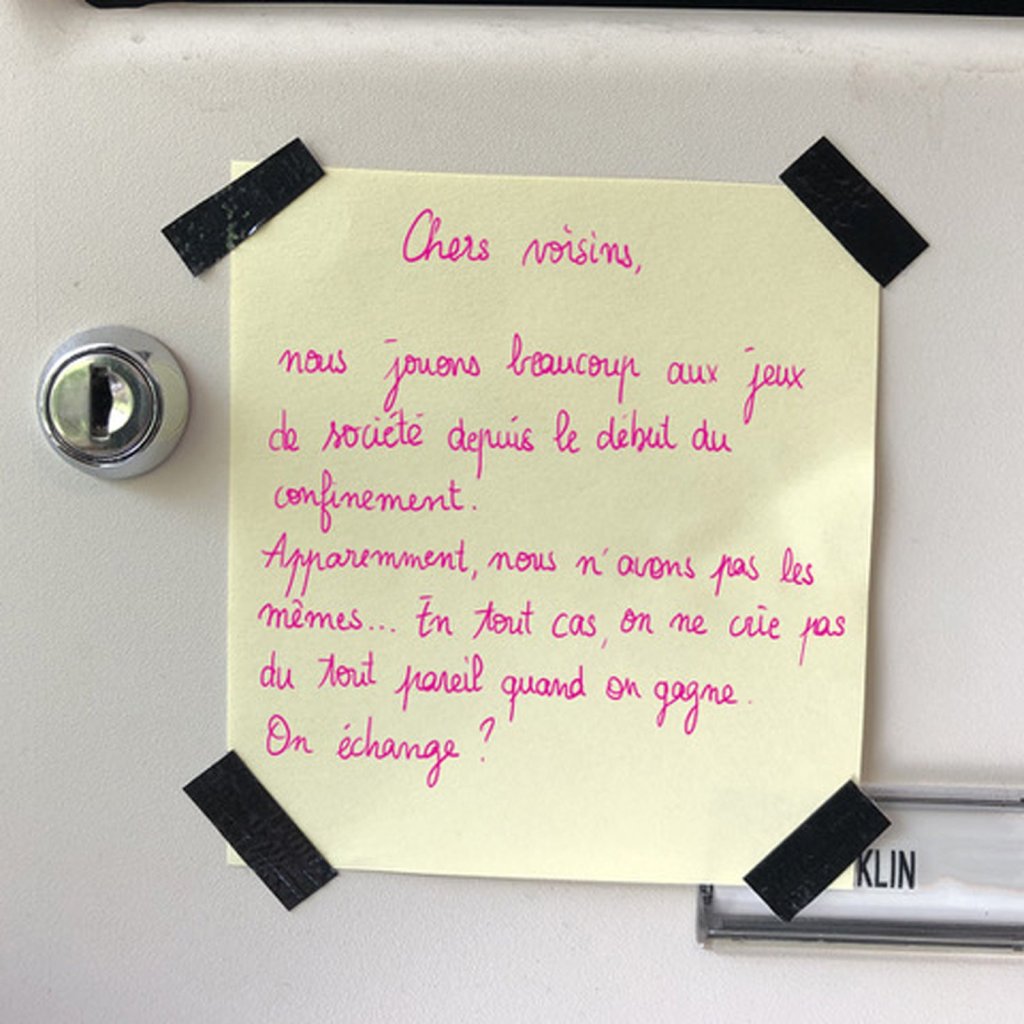 Chers voisins,
nous jouons beaucoup aux jeux
de société depuis le début du
confinement.
Apparemment, nous n'avons pas les
mêmes... En tout cas, on ne crie pas
du tout pareil quand on gagne.
On échange ?
KLIN